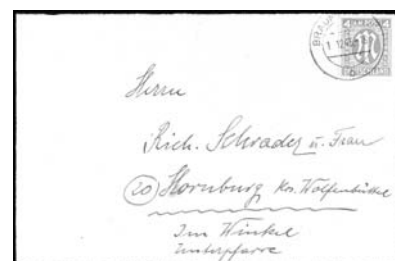 BRAUN
1.12.45
4 4
DEUTSCHLAND
b
Herrn
Rich. Schrader u. Frau
(20) Hornburg Krs. Wolfenbüttel
Im Winkel
Unterpfarre